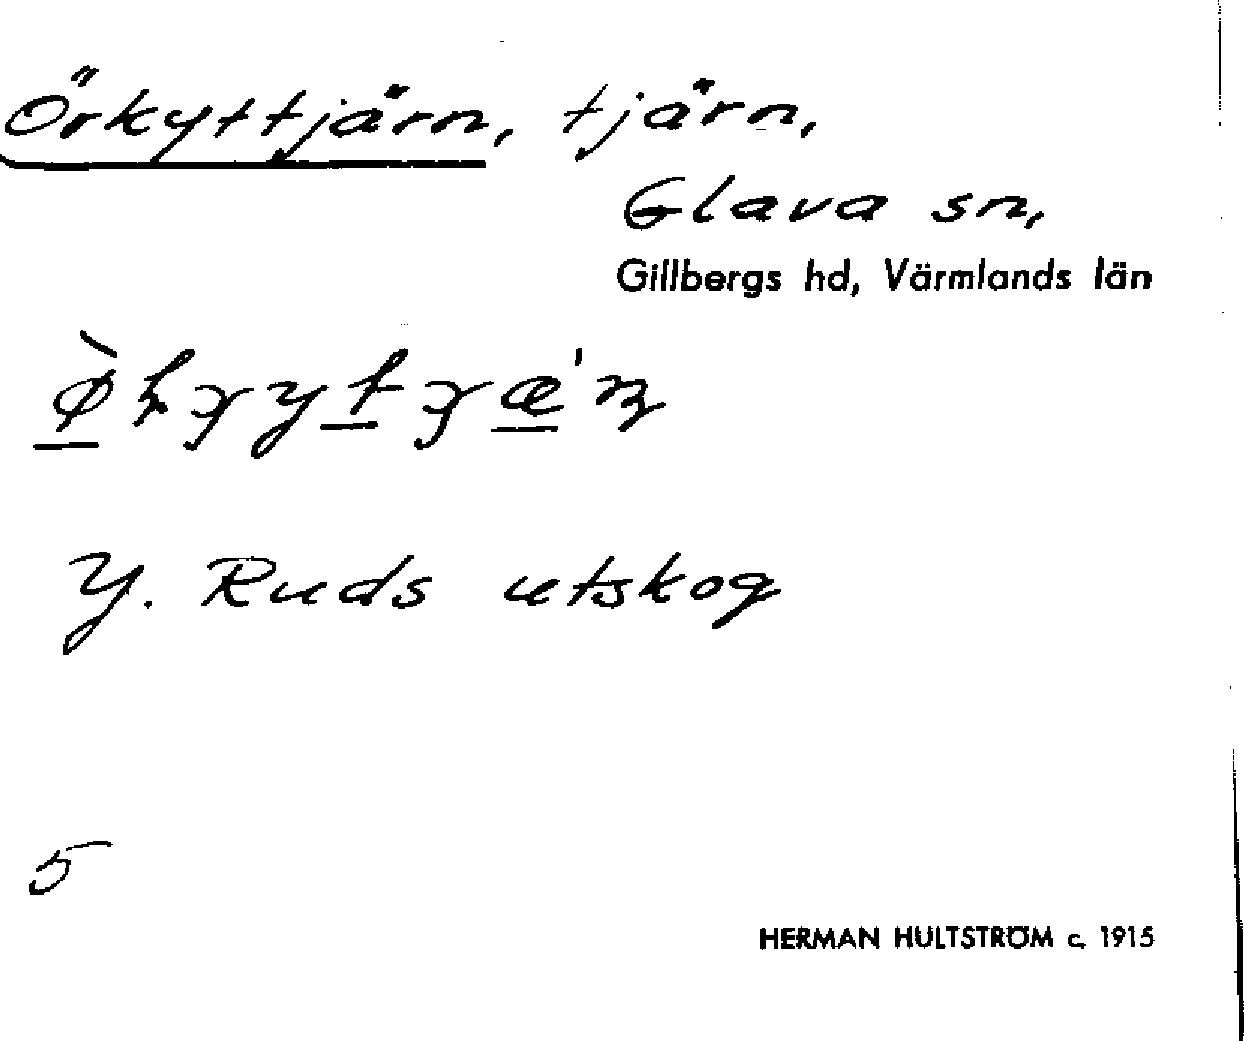 Örkyttjärn, tjärn,
Glava sn,
Gillbergs hd, Värmlands län
Y. Ruds utskog
5
HERMAN HULTSTRÖM c. 1915